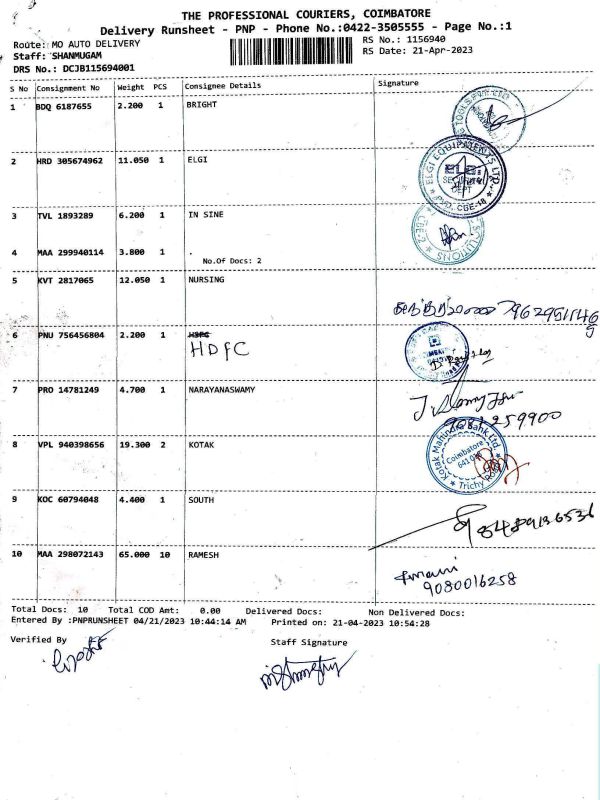 THE PROFESSIONAL COURIERS, COIMBATORE
Delivery Runsheet - PNP - Phone No.:0422-3505555 - Page No.:1
Route: MO AUTO DELIVERY RS No.: 1156940
Staff: SHANMUGAM RS Date: 21-Apr-2023
DRS No.: DCJB115694001
S No Consignment No Weight PCS Consignee Details Signature
1 BDQ 6187655 2.200 1 BRIGHT
2 HRD 305674962 11.050 1 ELGI
ELGI EQUIPMENTS LTD.
ELGi
SECURITY
DEPT
CBE-18
3 TVL 1893289 6.200 1 IN SINE
SOLUTIONS
CBE-2
4 MAA 299940114 3.800 1 .
No.Of Docs: 2
5 KVT 2817065 12.050 1 NURSING
6 PNU 756456804 2.200 1 HSFC
HDFC
7 PRO 14781249 4.700 1 NARAYANASWAMY
9081259900
8 VPL 940398656 19.300 2 KOTAK
Kotak Mahindra Bank Ltd.
Coimbatore
641 018
Trichy Road
9 KOC 60794048 4.400 1 SOUTH
10 MAA 298072143 65.000 10 RAMESH
9080016258
Total Docs: 10 Total COD Amt: 0.00 Delivered Docs: Non Delivered Docs:
Entered By :PNPRUNSHEET 04/21/2023 10:44:14 AM Printed on: 21-04-2023 10:54:28
Verified By Staff Signature